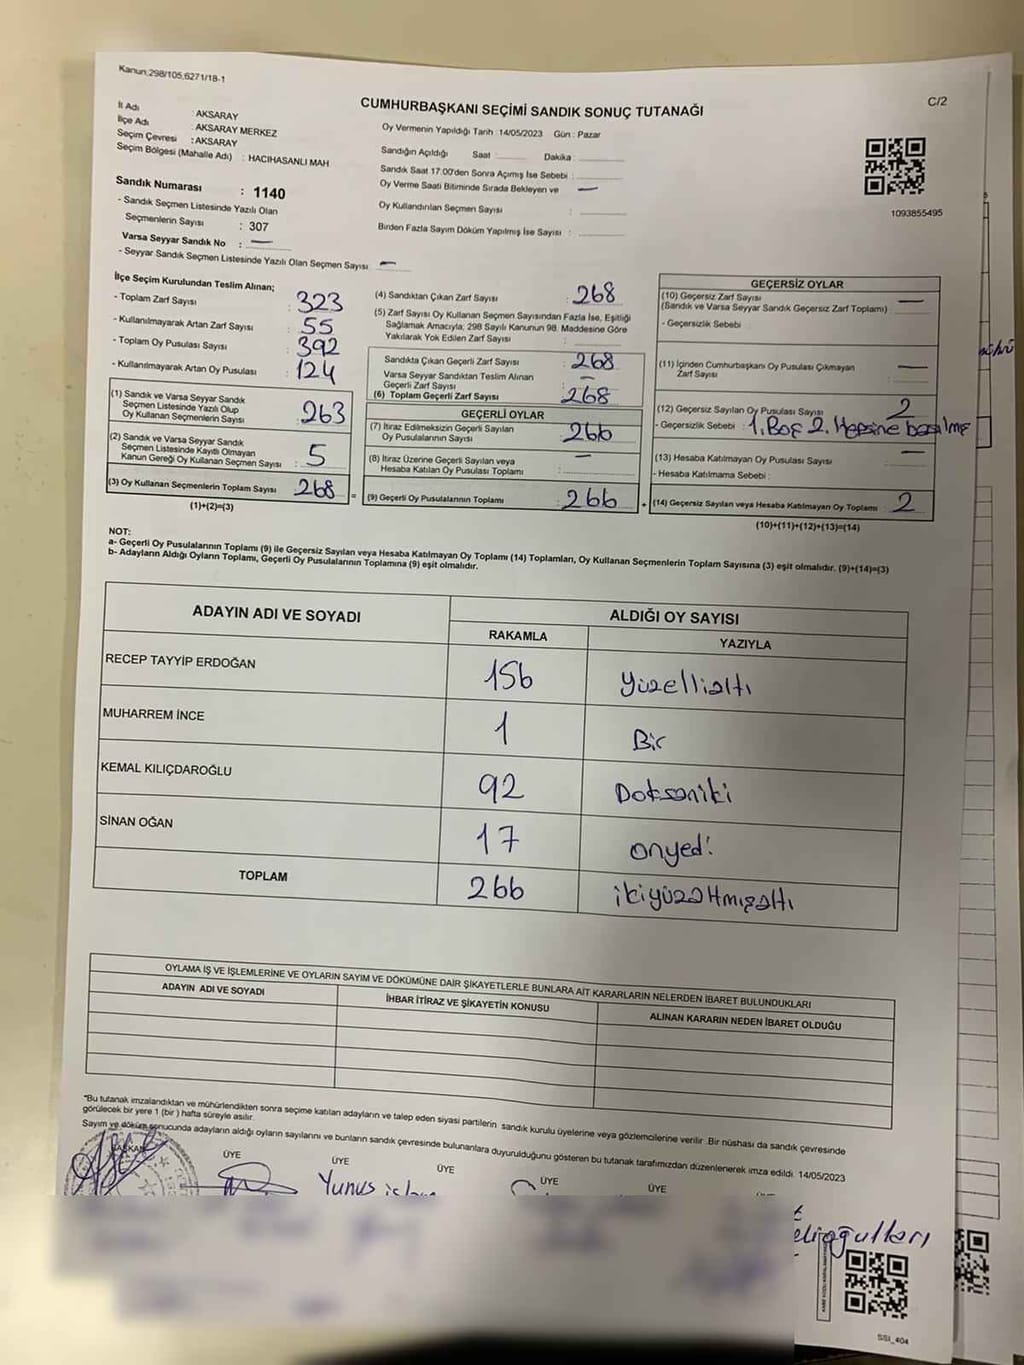 Kanun;298/105,6271/18-1
CUMHURBAŞKANI SEÇİMİ SANDIK SONUÇ TUTANAĞI
C/2
İl Adı : AKSARAY
İlçe Adı : AKSARAY MERKEZ
Seçim Çevresi : AKSARAY
Seçim Bölgesi (Mahalle Adı) : HACIHASANLI MAH
Sandık Numarası : 1140
- Sandık Seçmen Listesinde Yazılı Olan
Seçmenlerin Sayısı : 307
Varsa Seyyar Sandık No : —
- Seyyar Sandık Seçmen Listesinde Yazılı Olan Seçmen Sayısı —
Oy Vermenin Yapıldığı Tarih : 14/05/2023 Gün : Pazar
Sandığın Açıldığı Saat : Dakika :
Sandık Saat 17.00'den Sonra Açımış İse Sebebi :
Oy Verme Saati Bitiminde Sırada Bekleyen ve —
Oy Kullandırılan Seçmen Sayısı :
Birden Fazla Sayım Döküm Yapılmış İse Sayısı :
1093855495
İlçe Seçim Kurulundan Teslim Alınan;
- Toplam Zarf Sayısı : 323
- Kullanılmayarak Artan Zarf Sayısı : 55
- Toplam Oy Pusulası Sayısı : 392
- Kullanılmayarak Artan Oy Pusulası : 124
(1) Sandık ve Varsa Seyyar Sandık
Seçmen Listesinde Yazılı Olup
Oy Kullanan Seçmenlerin Sayısı : 263
(2) Sandık ve Varsa Seyyar Sandık
Seçmen Listesinde Kayıtlı Olmayan
Kanun Gereği Oy Kullanan Seçmen Sayısı : 5
(3) Oy Kullanan Seçmenlerin Toplam Sayısı : 268
(1)+(2)=(3)
(4) Sandıktan Çıkan Zarf Sayısı : 268
(5) Zarf Sayısı Oy Kullanan Seçmen Sayısından Fazla İse, Eşitliği
Sağlamak Amacıyla; 298 Sayılı Kanunun 98. Maddesine Göre
Yakılarak Yok Edilen Zarf Sayısı :
Sandıkta Çıkan Geçerli Zarf Sayısı : 268
Varsa Seyyar Sandıktan Teslim Alınan
Geçerli Zarf Sayısı : —
(6) Toplam Geçerli Zarf Sayısı : 268
GEÇERLİ OYLAR
(7) İtiraz Edilmeksizin Geçerli Sayılan
Oy Pusulalarının Sayısı : 266
(8) İtiraz Üzerine Geçerli Sayılan veya
Hesaba Katılan Oy Pusulası Toplamı : —
= (9) Geçerli Oy Pusulalarının Toplamı : 266 +
GEÇERSİZ OYLAR
(10) Geçersiz Zarf Sayısı
(Sandık ve Varsa Seyyar Sandık Geçersiz Zarf Toplamı) : —
- Geçersizlik Sebebi :
(11) İçinden Cumhurbaşkanı Oy Pusulası Çıkmayan
Zarf Sayısı : —
(12) Geçersiz Sayılan Oy Pusulası Sayısı : 2
- Geçersizlik Sebebi : 1. Boş 2. Hepsine basılmış
(13) Hesaba Katılmayan Oy Pusulası Sayısı : —
- Hesaba Katılmama Sebebi :
(14) Geçersiz Sayılan veya Hesaba Katılmayan Oy Toplamı : 2
(10)+(11)+(12)+(13)=(14)
NOT:
a- Geçerli Oy Pusulalarının Toplamı (9) ile Geçersiz Sayılan veya Hesaba Katılmayan Oy Toplamı (14) Toplamları, Oy Kullanan Seçmenlerin Toplam Sayısına (3) eşit olmalıdır. (9)+(14)=(3)
b- Adayların Aldığı Oyların Toplamı, Geçerli Oy Pusulalarının Toplamına (9) eşit olmalıdır.
ADAYIN ADI VE SOYADI ALDIĞI OY SAYISI
RAKAMLA YAZIYLA
RECEP TAYYİP ERDOĞAN 156 Yüzellialtı
MUHARREM İNCE 1 Bir
KEMAL KILIÇDAROĞLU 92 Doksaniki
SİNAN OĞAN 17 onyedi
TOPLAM 266 ikiyüzaltmışaltı
OYLAMA İŞ VE İŞLEMLERİNE VE OYLARIN SAYIM VE DÖKÜMÜNE DAİR ŞİKAYETLERLE BUNLARA AİT KARARLARIN NELERDEN İBARET BULUNDUKLARI
ADAYIN ADI VE SOYADI İHBAR İTİRAZ VE ŞİKAYETİN KONUSU ALINAN KARARIN NEDEN İBARET OLDUĞU
"Bu tutanak imzalandıktan ve mühürlendikten sonra seçime katılan adayların ve talep eden siyasi partilerin sandık kurulu üyelerine veya gözlemcilerine verilir. Bir nüshası da sandık çevresinde
görülecek bir yere 1 (bir) hafta süreyle asılır.
Sayım ve döküm sonucunda adayların aldığı oyların sayılarını ve bunların sandık çevresinde bulunanlara duyurulduğunu gösteren bu tutanak tarafımızdan düzenlenerek imza edildi. 14/05/2023
BAŞKAN ÜYE ÜYE ÜYE ÜYE ÜYE
Yunus
SSI_404